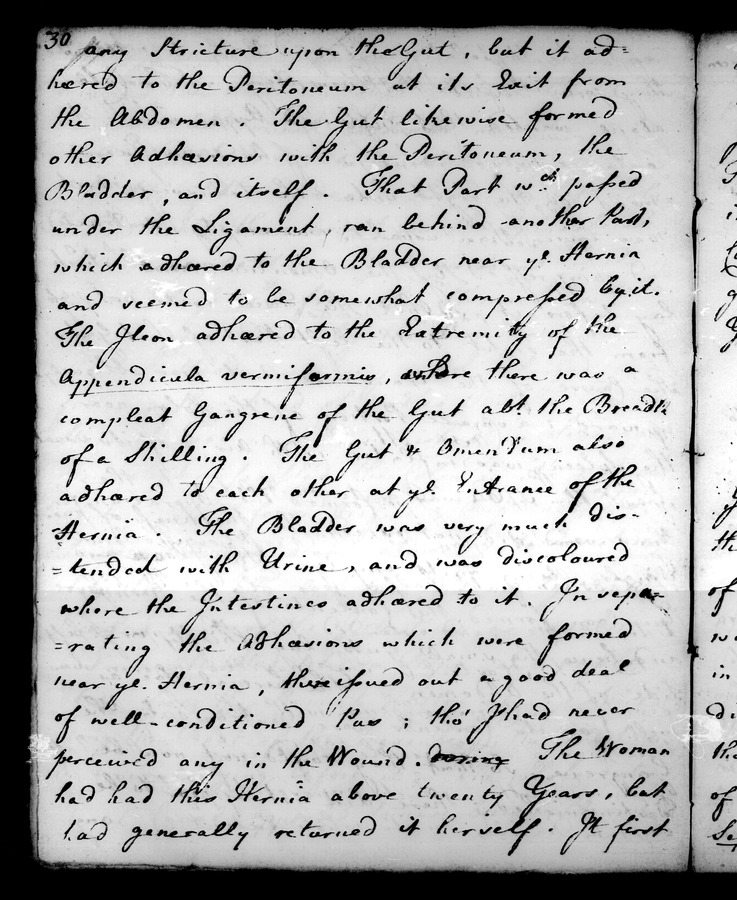 30
any Stricture upon the Gut, but it ad=
hæred to the Peritoneum at its Exit from
the Abdomen. The Gut likewise formed
other Adhæsions with the Peritoneum, the
Bladder, and itself. That Part wch. passed
under the Ligament, ran behind another Part,
which adhæred to the Bladder near ye. Hernia
and seemed to be somewhat compressed by it.
The Ileon adhæred to the Extremity of the
Appendicula vermiformis, where there was a
compleat Gangrene of the Gut abt. the Breadth
of a Shilling. The Gut & Omentum also
adhæred to each other at ye. Entrance of the
Hernia. The Bladder was very much dis-
=tended with Urine, and was discoloured
where the Intestines adhæred to it. In sepa=
=rating the Adhæsions which were formed
near ye. Hernia, there issued out a good deal
of well-conditioned Pus; tho' I had never
perceived any in the Wound. During The Woman
had had this Hernia above twenty Years, but
had generally returned it herself. It first